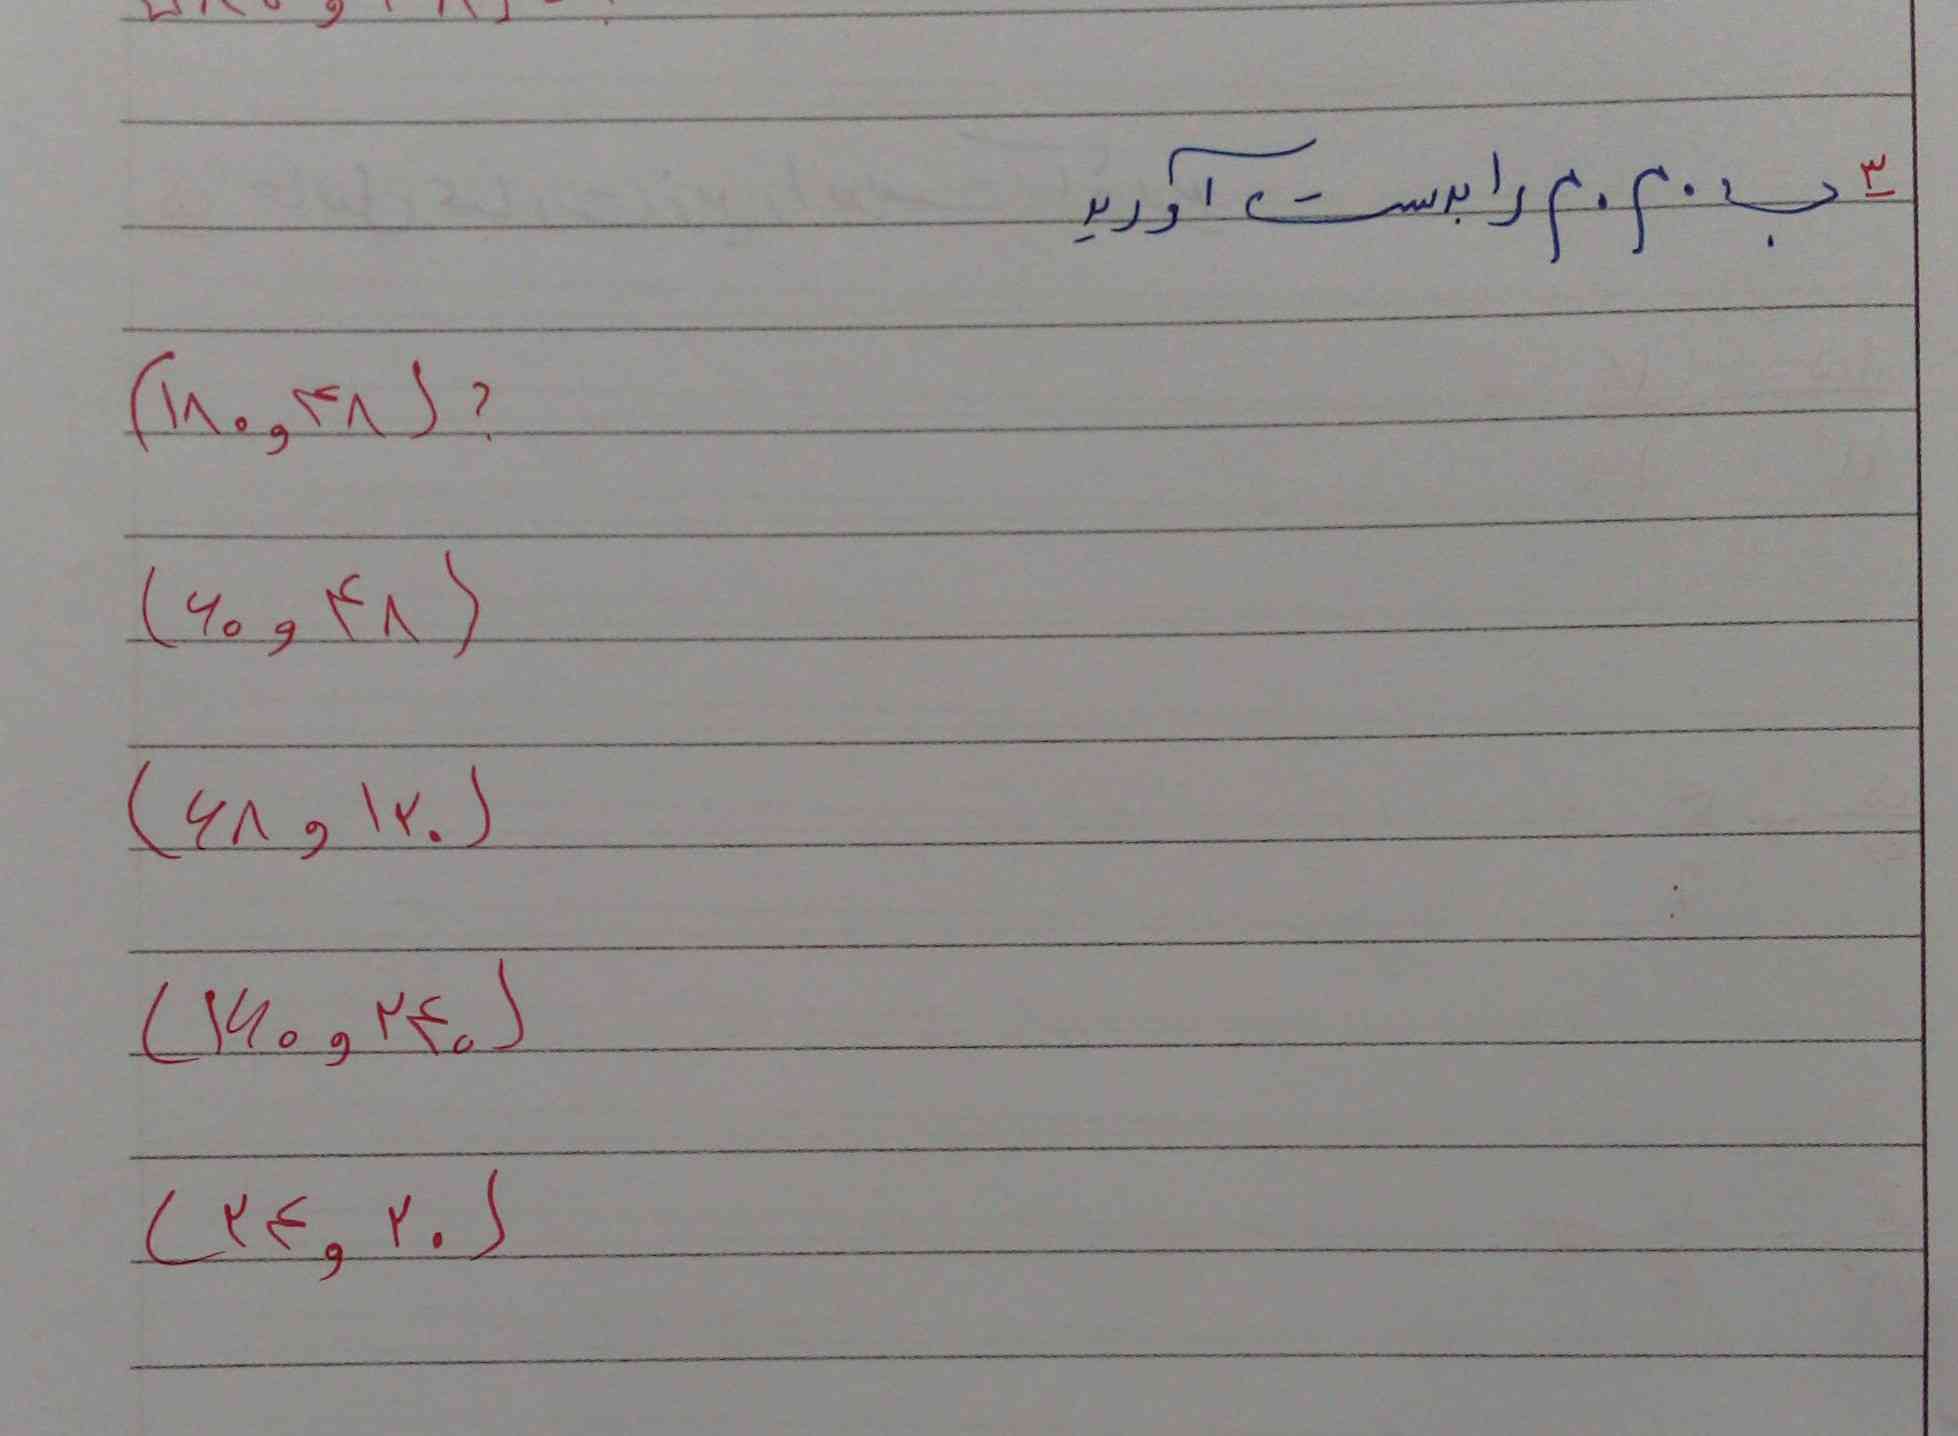 ۳ ب.م.م را بدست آورید
(۱۸۰و۴۸)؟
(۶۰و۴۸)
(۶۸و۱۲۰)
(۱۶۰و۲۴۰)
(۲۴و۲۰)